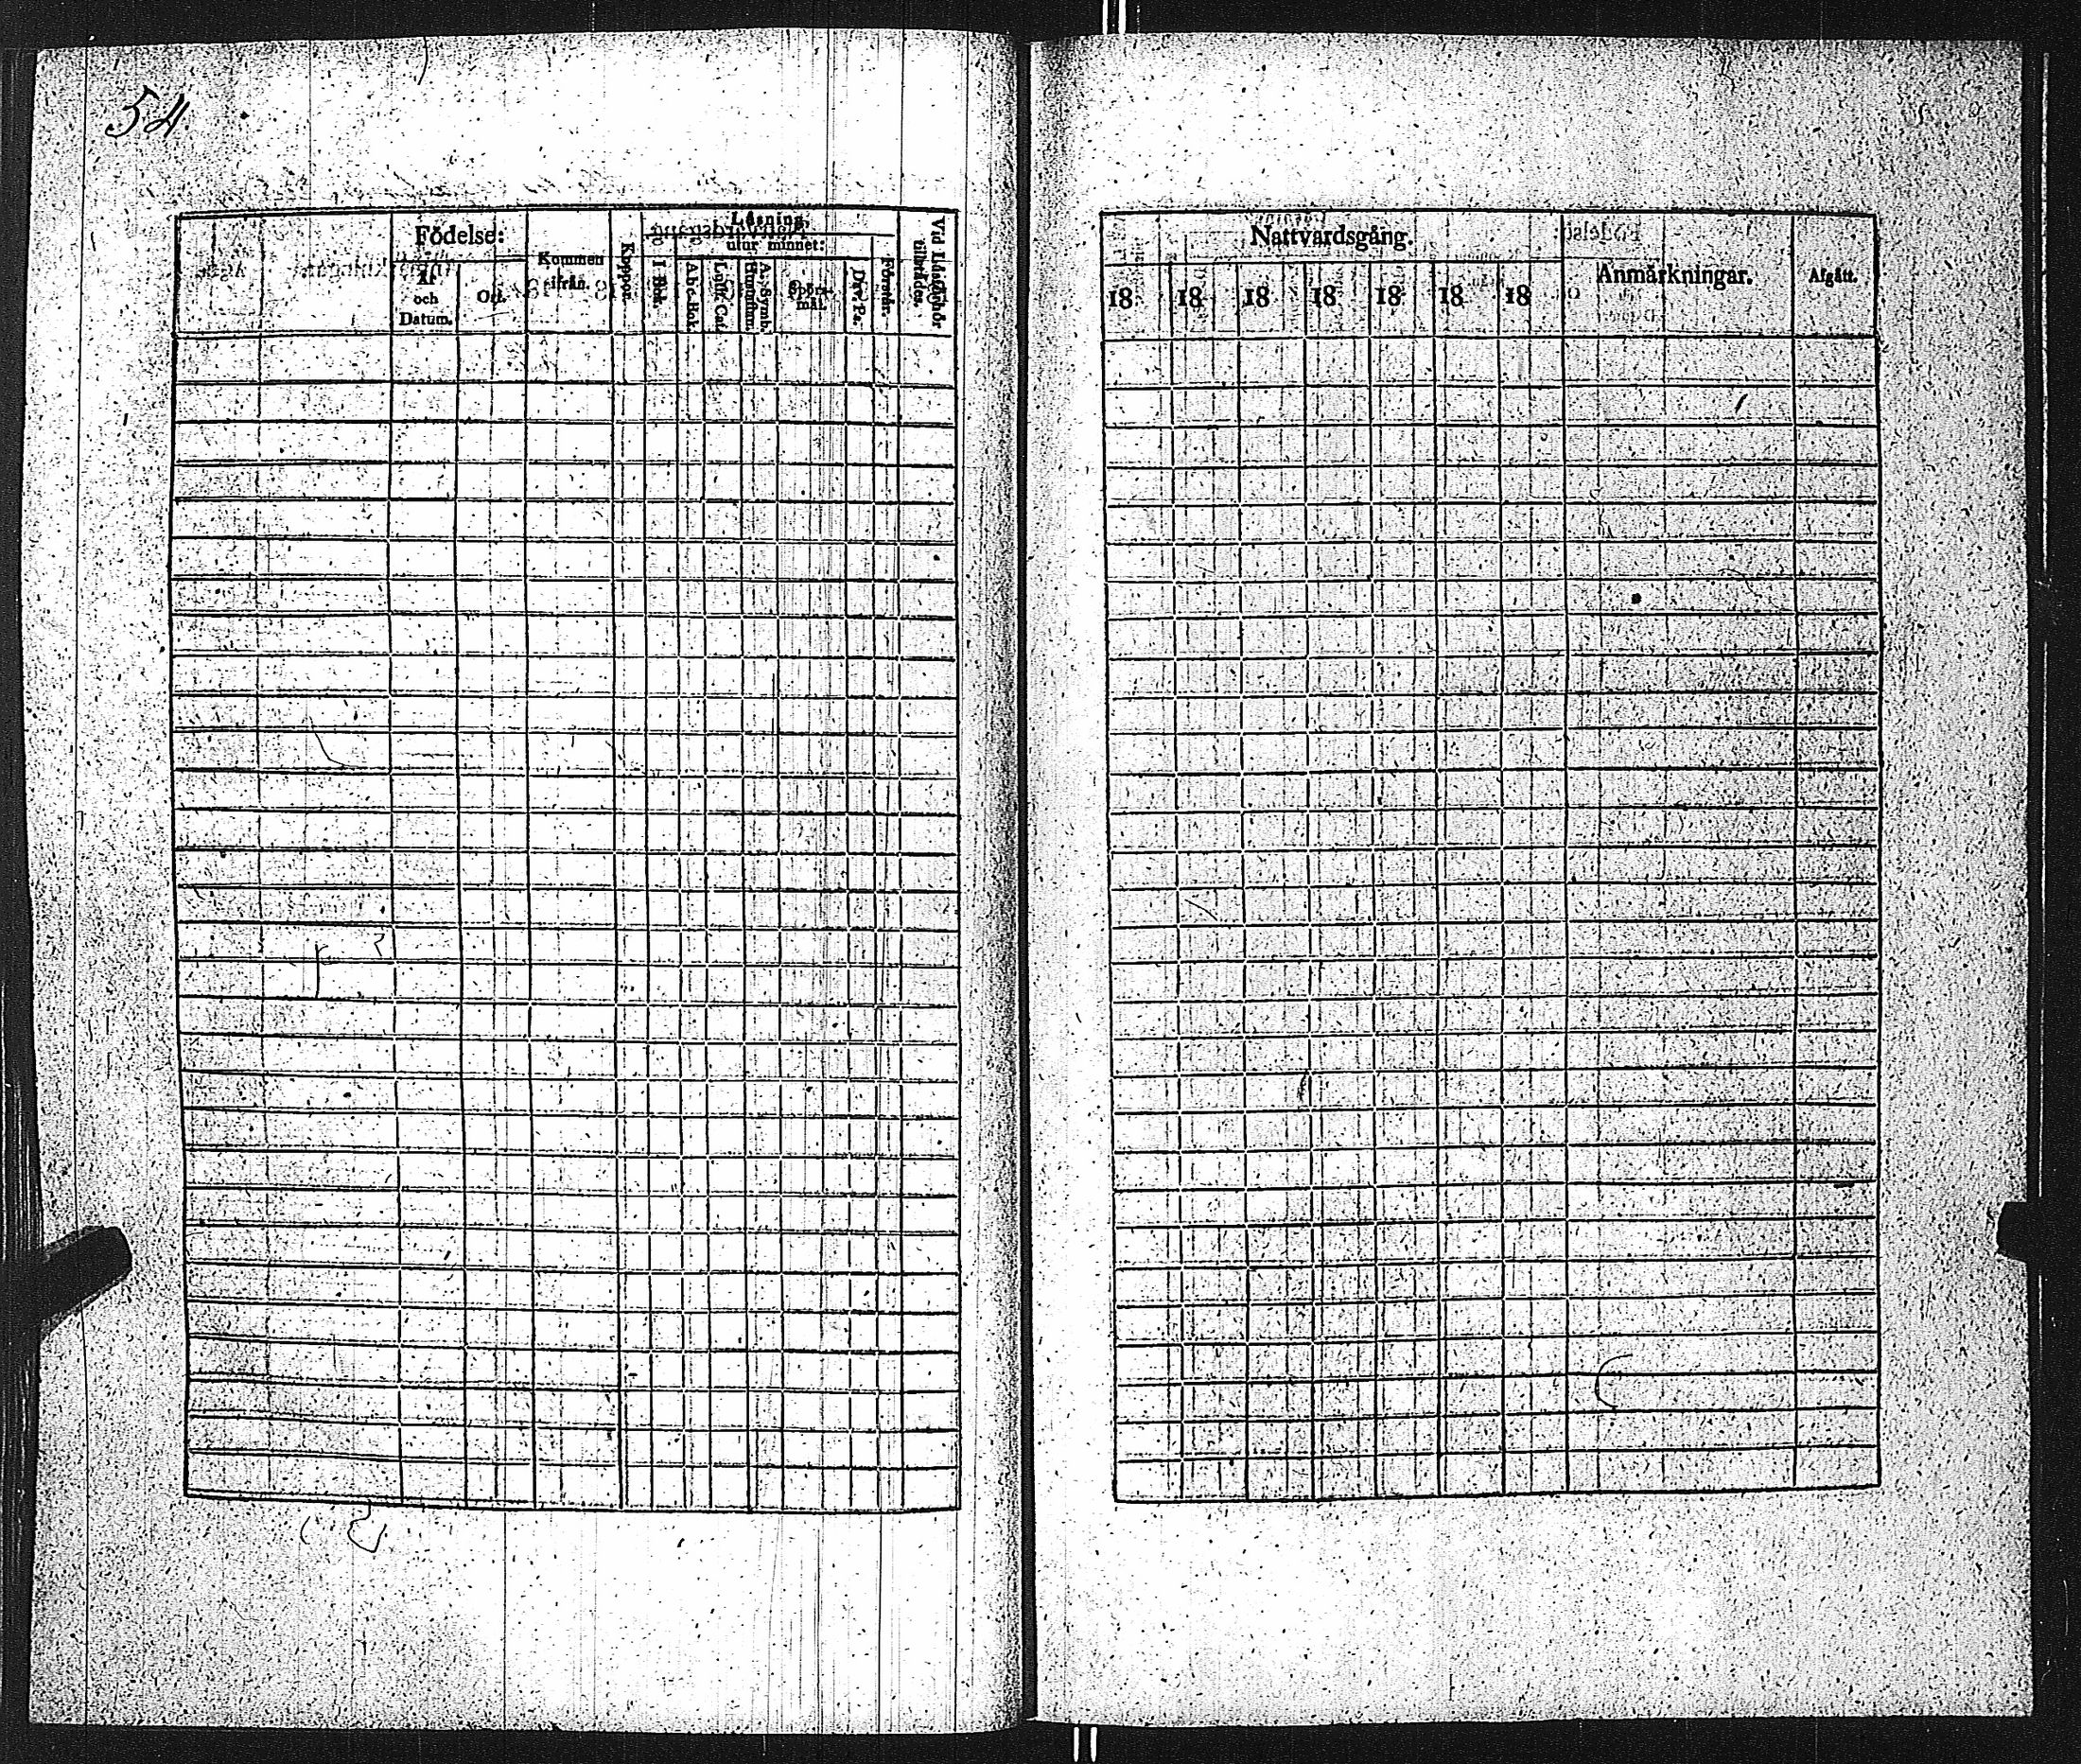 54.
Födelse:
År
och
Datum.
Ort.
Kommen
ifrån.
Koppor.
Läsning,
utur minnet:
I Bok.
Abc-Bok.
Luth. Cat.
A. Symb.
Spörs-
mål.
Dav. Ps.
Förstår.
Vid Läsförhör
tillstädes.
Nattvardsgång.
18 18 18 18 18 18 18
Anmärkningar.
Afgått.